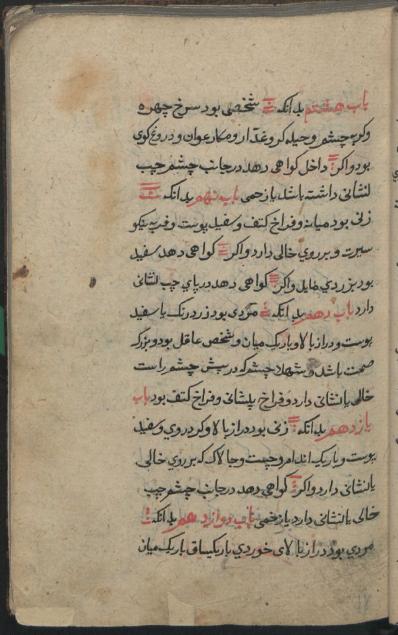 باب هشتم بدانکه شخصی بود سرخ چهره
و کربه چشم و حیله کر و غدار و مکار عوان و دروغ کوی
بود و اکر داخل کواهی دهد در جانب چشم چپ
نشانی داشته باشد یا زخمی باب نهم بدانکه
زنی بود میانه و فراخ کتف و سفید پوست و فربه نیکو
سیرت و بر روی خالی دارد و اکر کواهی دهد سفید
بود بزردی مایل و اکر کواهی دهد در پای چپ نشانی
دارد باب دهم بدانکه مردی بود زرد رنک یا سفید
پوست و دراز بالا و باریک میان و شخص عاقل بود و بزرک
همت باشد و شهلا چشم که در پیش چشم راست
خالی یا نشانی دارد و فراخ پیشانی و فراخ کتف بود باب
یازدهم بدانکه زنی بود دراز بالا و کرد روی و سفید
پوست و باریک اندام و چست و چالاک که بر روی خالی
یا نشانی دارد و اکر کواهی دهد در جانب چشم چپ
خالی یا نشانی دارد یا زخمی باب دوازدهم بدانکه
مردی بود دراز بالای خوردی باریک ساق باریک میان